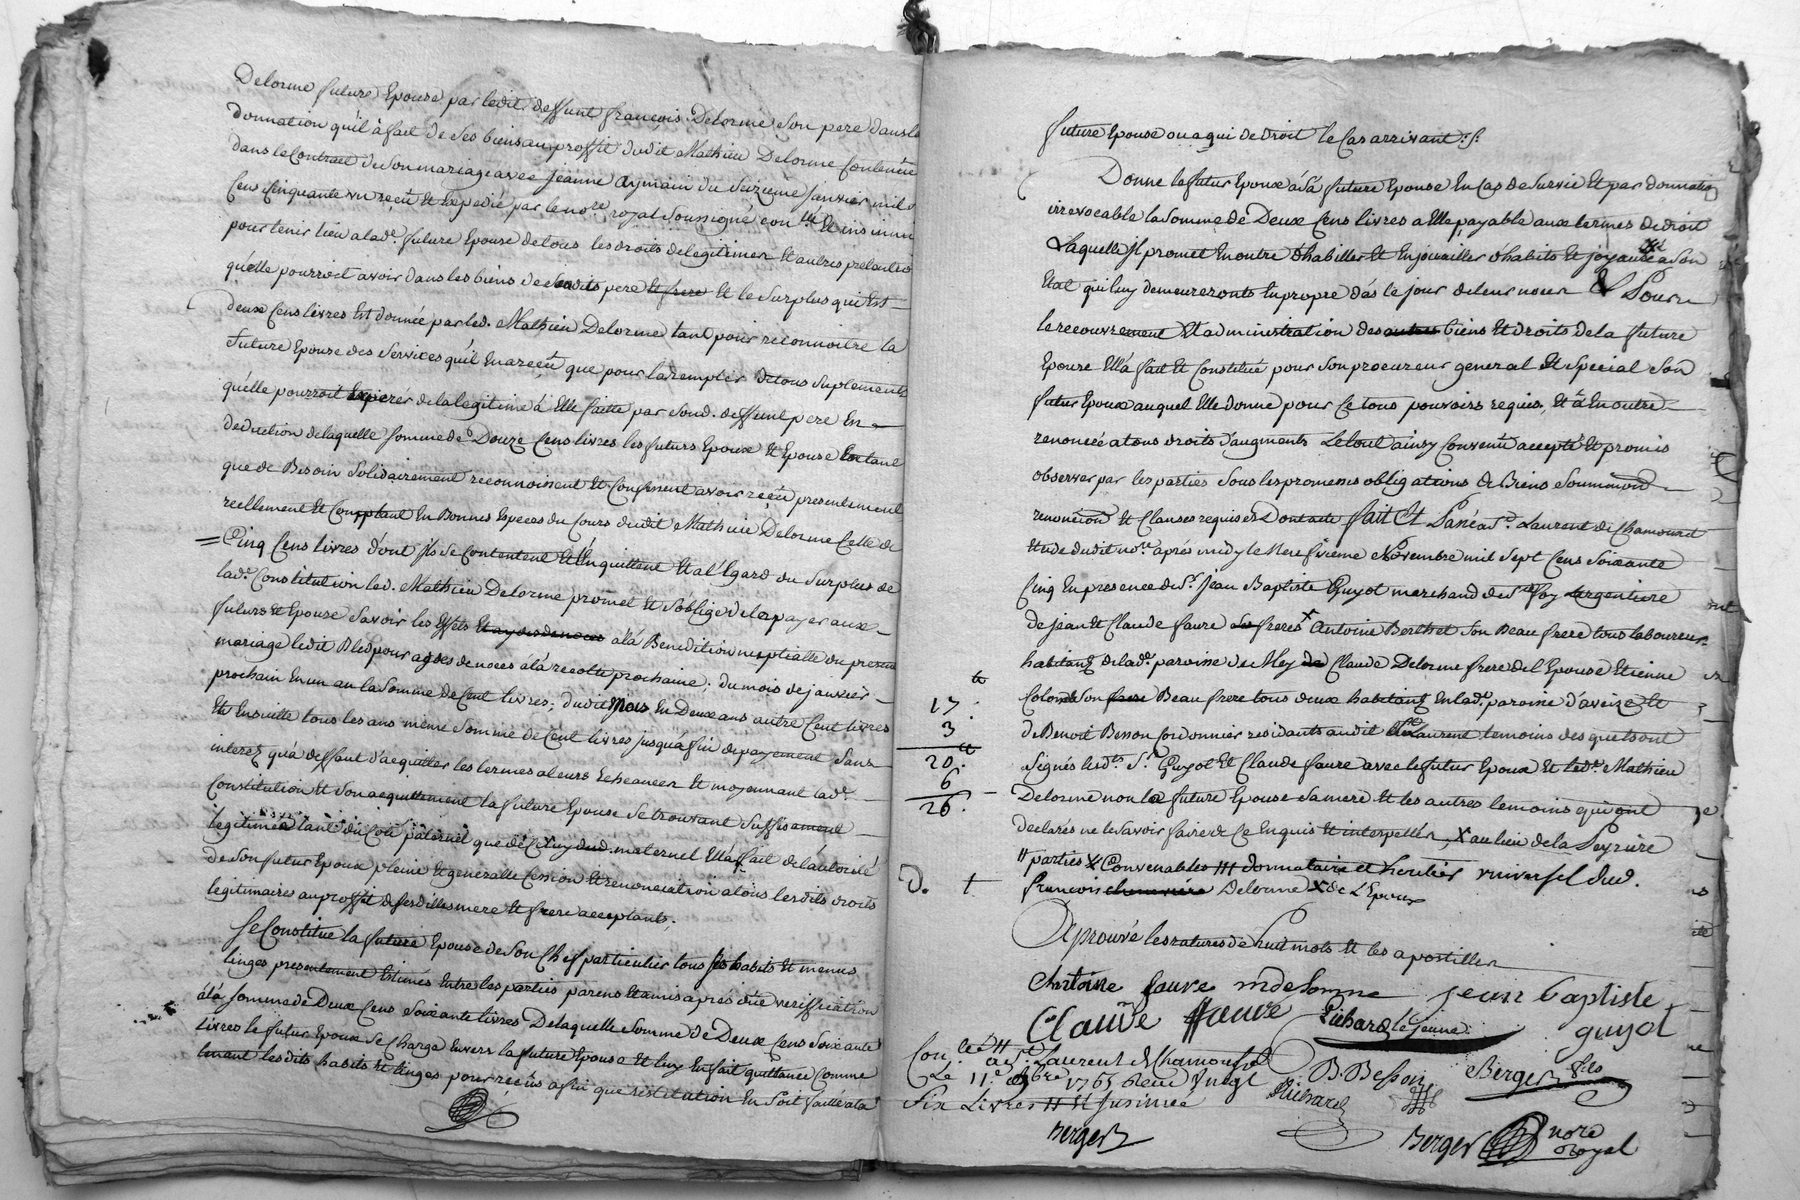 Delorme future Epouse par ledit deffunt françois Delorme son pere dans la
donnation qu'il à fait de ses biens au proffit dudit Mathieu Delorme Contenüe
dans le Contract de son mariage avec jeanne Aymain du seizieme janvier mil
Cens Cinquante un reçu Et Expedié par le nore royal soussigné con.lé Et insinué
pour tenir lieu a lade. future Epouse de tous les droits de legitimes Et autres
qu'elle pourroit avoir dans les biens de sesdits pere Et frere Et le surplus qui Est
deux Cens livres Est donnée par led. Mathieu Delorme tant pour reconnoitre la
future Epouse des services qu'il En a reçu que pour la remplir de tous suplements
qu'elle pourroit Esperer de la legitime à Elle faitte par sond. deffunt pere En
deduction de laquelle somme de Douze Cens livres les futurs Epoux Et Epouse En tant
que de Besoin solidairement reconnoissent Et Confessent avoir reçu presentement
reellement Et Comptant En Bonnes Especes du Cours dudit Mathieu Delorme Celle de
Cinq Cens livres d'ont ils se Contentent Et l'En quittent Et a l'Egard du surplus de
lade. Constitution led. Mathieu Delorme promet Et s'oblige de la payer aux
futurs Et Epouse savoir les Effets à la Benediction nuptialle du present
mariage ledit Bled pour de noces à la recolte prochaine; du mois de janvier
prochain En un an la somme de Cent livres; dudit Mois En Deux ans autre Cent livres
Et Ensuitte tous les ans même somme de Cent livres jusqu'à fin de payement sans
interez qu'à deffaut d'acquitter les termes a leurs Echeances Et moyennant lade.
Constitution Et son acquittement la future Epouse se trouvant suffisament
legitimée tant du Coté paternel que de maternel Ella fait de l'autorité
de son futur Epoux pleine Et generalle Cession Et renonciation a tous lesdits droits
legitimaires au proffit de sesdits mere Et frere acceptants,
Se Constitue la future Epouse de son Chef particulier tous ses habits Et menus
linges presentement Estimés Entre les parties parens Et amis après düe veriffication
à la somme de Deux Cens soixante livres De laquelle somme de Deux Cens soixante
livres le futur Epoux se Charge Envers la future Epouse Et luy En fait quittance Comme
tenant lesdits habits Et linges pour reçus afin que restitution En soit faitte a la
future Epouse ou a qui de droit le Cas arrivant :/:
Donne le futur Epoux a sa future Epouse En Cas de survie Et par donnation
irrevocable la somme de Deux Cens livres a Elle payable aux termes de droit
Laquelle il promet En outre d'habiller Et Enjouailler d'habits Et joyaux a son
Etat qui luy demeureronts En propre dés le jour de leur noces & Pour
le recouvrement Et administration des autres biens Et droits de la future
Epouse Ella fait Et Constitué pour son procureur general Et special son
futur Epoux auquel Elle donne pour Ce tous pouvoirs requis, Et à En outre
renoncée a tous droits d'augments Le tout ainsy Convenu accepté Et promis
observer par les parties sous les promesses obligations de Biens soumission
renoncion Et Clauses requises Dont acte fait Et Passé a St. Laurent de Chamousset
Etude dudit nore après midy le Neufvieme Novembre mil sept Cens soixante
Cinq En presence de Sr. Jean Baptiste Guyot marchand de Ste foy Largentiere
de jean Et Claude faure freres x Antoine Berthet son Beau frere tous laboureurs
habitans de lade. paroisse de Mey Claude Delorme frere de l'Epouse Etienne
Colomb son Beau frere tous deux habitans En lade. paroisse d'aveize Et
de Benoit Besson Cordonnier residants audit St Laurent temoins des quels ont
signés lesdts Sr Guyot Et Claude faure avec le futur Epoux Et led. Mathieu
Delorme non la future Epouse sa mere Et les autres temoins qui ont
declarés ne le savoir faire de Ce Enquis Et interpellés, x au lieu de la Peyriere
# parties x Convenables ### donnataire et heritier universel dud.
françois Delorme x de l'Epoux
17.
3
20.
6
26.
D. +
Aprouvé les ratures de huit mots Et les apostilles
Antoine faure mdelorme jean baptiste
guyot
Claude faure Pichard le jeune
B. Besson Berger fils
Con.lé a St. Laurent de Chamousset
Le 11.e 9bre 1765 Reçu vingt
six Livres Et insinué
Pichard
Berger
Berger nore
Royal